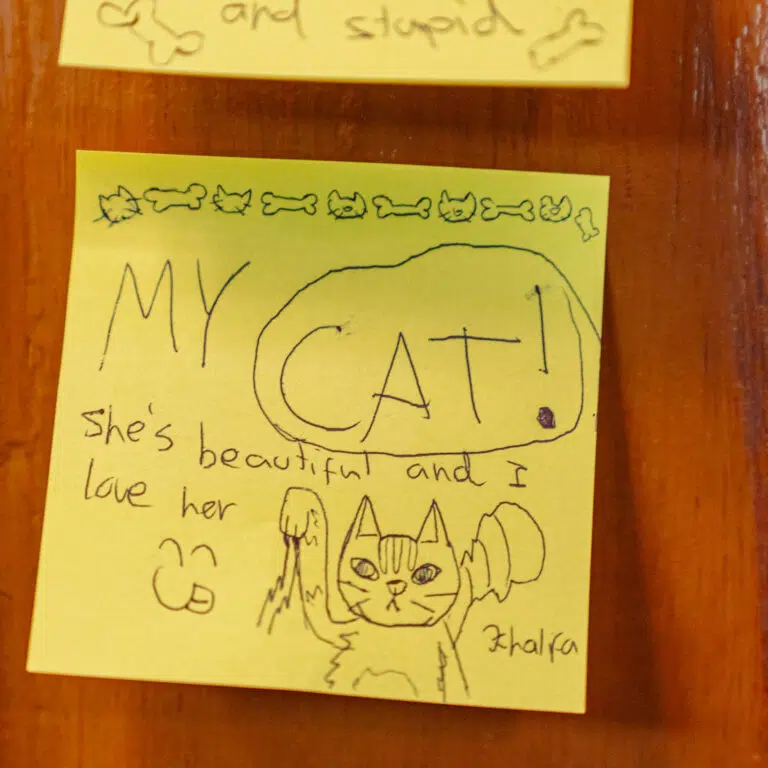 and stupid
MY CAT!
she's beautiful and I
love her
Khalfa